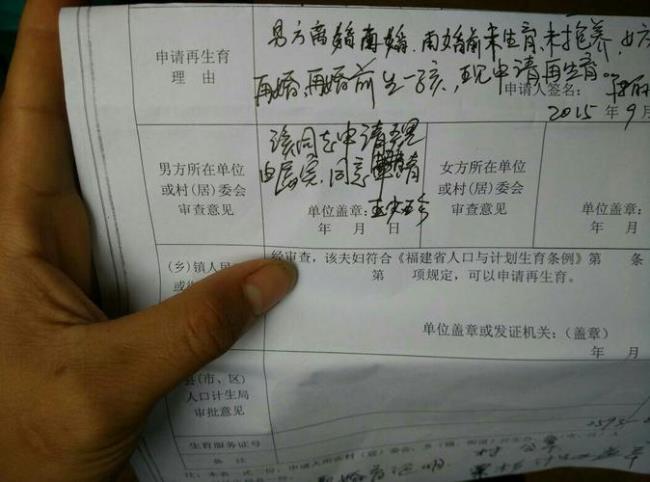 男方离婚再婚,再婚前未生育、未抱养,女方
申请再生育
理 由
再婚,再婚前生一孩,现申请再生育。
申请人签名:
2015 年 9 月
该同志申请理
由属实,同意申请
男方所在单位
或村(居)委会
审查意见
单位盖章:
年 月 日
女方所在单位
或村(居)委会
审查意见
单位盖章:
年 月
(乡)镇人民
经审查,该夫妇符合《福建省人口与计划生育条例》第 条
第 项规定,可以申请再生育。
单位盖章或发证机关:(盖章)
年 月
县(市、区)
人口计生局
审批意见
生育服务证号
备 注